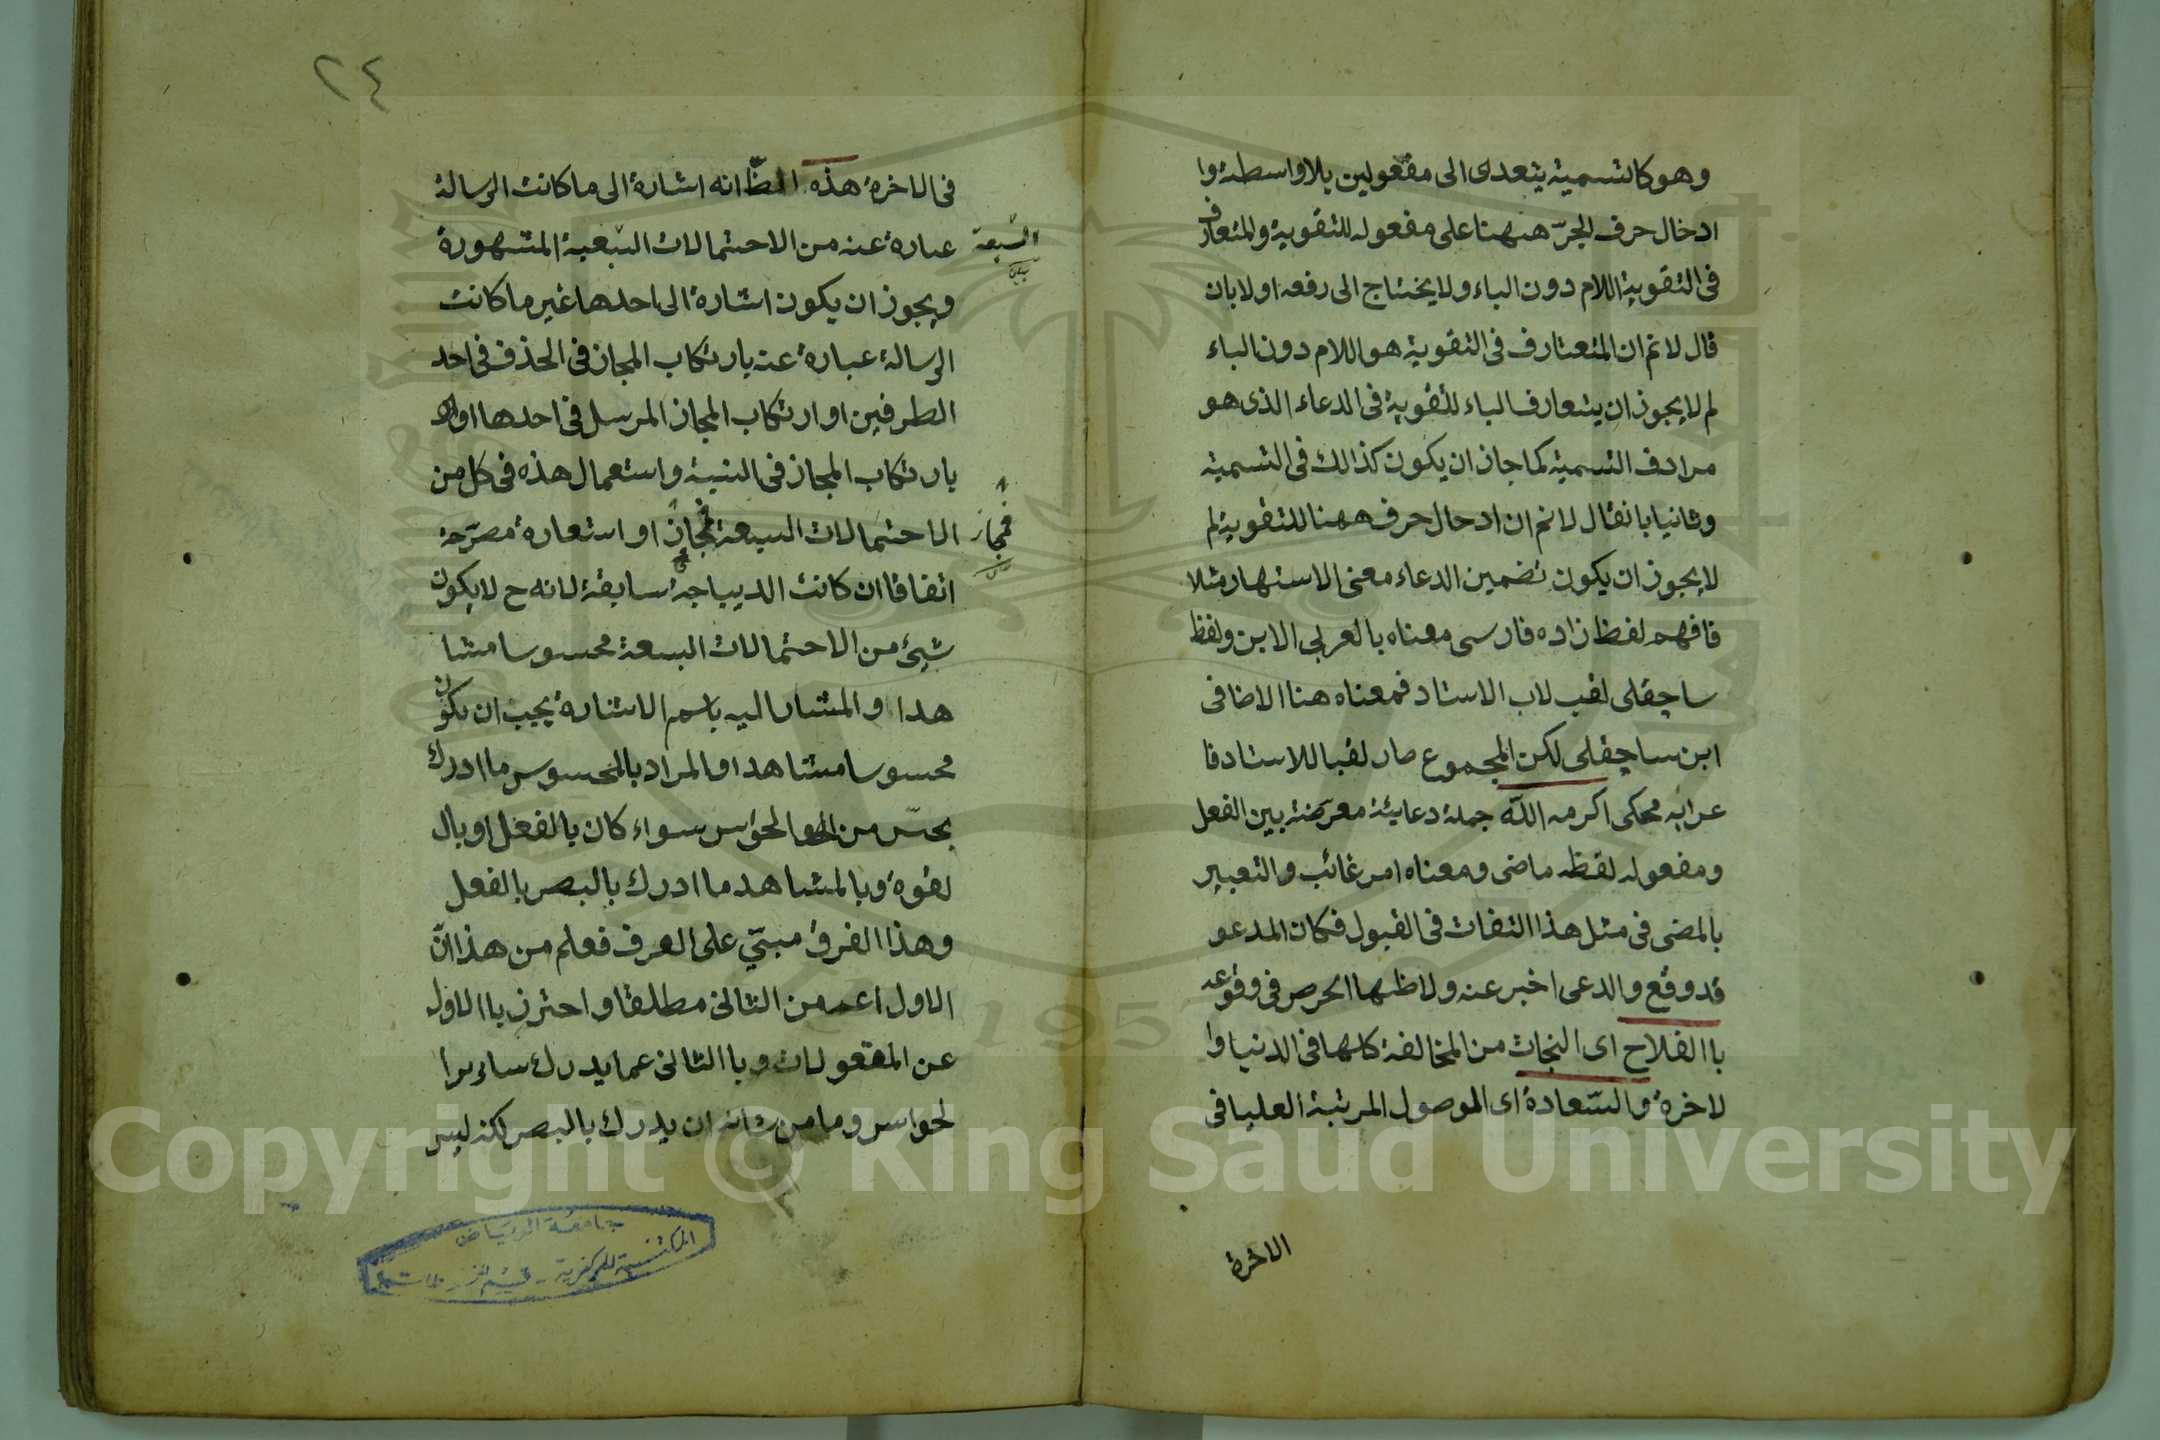 وهو كالتسمية يتعدى الى مفعولين بلا واسطة وا
ادخال حرف الجرّ ههنا على مفعوله للتقوية والمتعارف
فى التقوية اللام دون الباء ولا يحتاج الى رفعه اولا بان
قال لانم ان المتعارف فى التقوية هو اللام دون الباء
لم لا يجوز ان يتعارف الباء للتقوية فى الدعاء الذى هو
مرادف التسمية كما جاز ان يكون كذالك فى التسمية
وثانيا بانقال لانم ان ادحال حرف ههنا للتقوية لم
لا يجوز ان يكون تضمين الدعاء معنى الاستهار مثلا
فافهم لفظ زاده فارسى معناه بالعربى الابن ولفظ
ساچقلى لقب لاب الاستاد فمعناه هنا الاضافى
ابن ساچقلى لكن المجموع صار لقبا للاستاد فا
عرابه محكى اكرمه اللّه جملة دعايئة معرّضة بين الفعل
ومفعوله لفظه ماضى ومعناه امر غائب والتعبير
بالمضى فى مثل هذا التفات فى القبول فكان المدعو
قد وقع والدعى اخبر عنه ولاظهار الحرص فى وقوعه
باالفلاح اى النجات من المخالفة كلها فى الدنيا وا
لاخرة والسّعادة اى الموصول المرتبة العليا فى
الاخرة
٢٤
فى الاخرة هذه الظّ انه اشارة الى ما كانت الرسالة
عبارة عنه من الاحتمالات السبعية المشهورة
السّبعة
ويجوز ان يكون اشارة الى احدها غير ما كانت
الرسالة عبارة عنه بارتكاب المجاز فى الحذف فى احد
الطرفين او ارتكاب المجاز المرسل فى احدها او
بارتكاب المجاز فى النسبة واستعمال هذه فى كل من
الاحتمالات السبعة فمجاز او استعارة مصرّحة
فمجاز
اتفاقا ان كانت الديباجة سابقة لانه ح لا يكون
شيئ من الاحتمالات السبعة محسوسا مشا
هدا والمشار اليه باسم الاشارة يجيب ان يكون
محسوسا مشاهدا والمراد بالمحسوس ما ادرك
بحسّ من الحواس سواء كان بالفعل او بال
لقوة وبالمشاهد ما ادرك بالبصر بالفعل
وهذا الفرق مبنّي على العرف فعلم من هذا انّ
الاول اعم من الثانى مطلقا واحترز باالاول
عن المقعولات وباالثانى عما يدرك ساءر ا
لحواس وما من شانه ان يدرك بالبصر لكنه ليس
جامعة الرياض
المكتبة المركزية - قسم المخطوطات
Copyright © King Saud University
1957